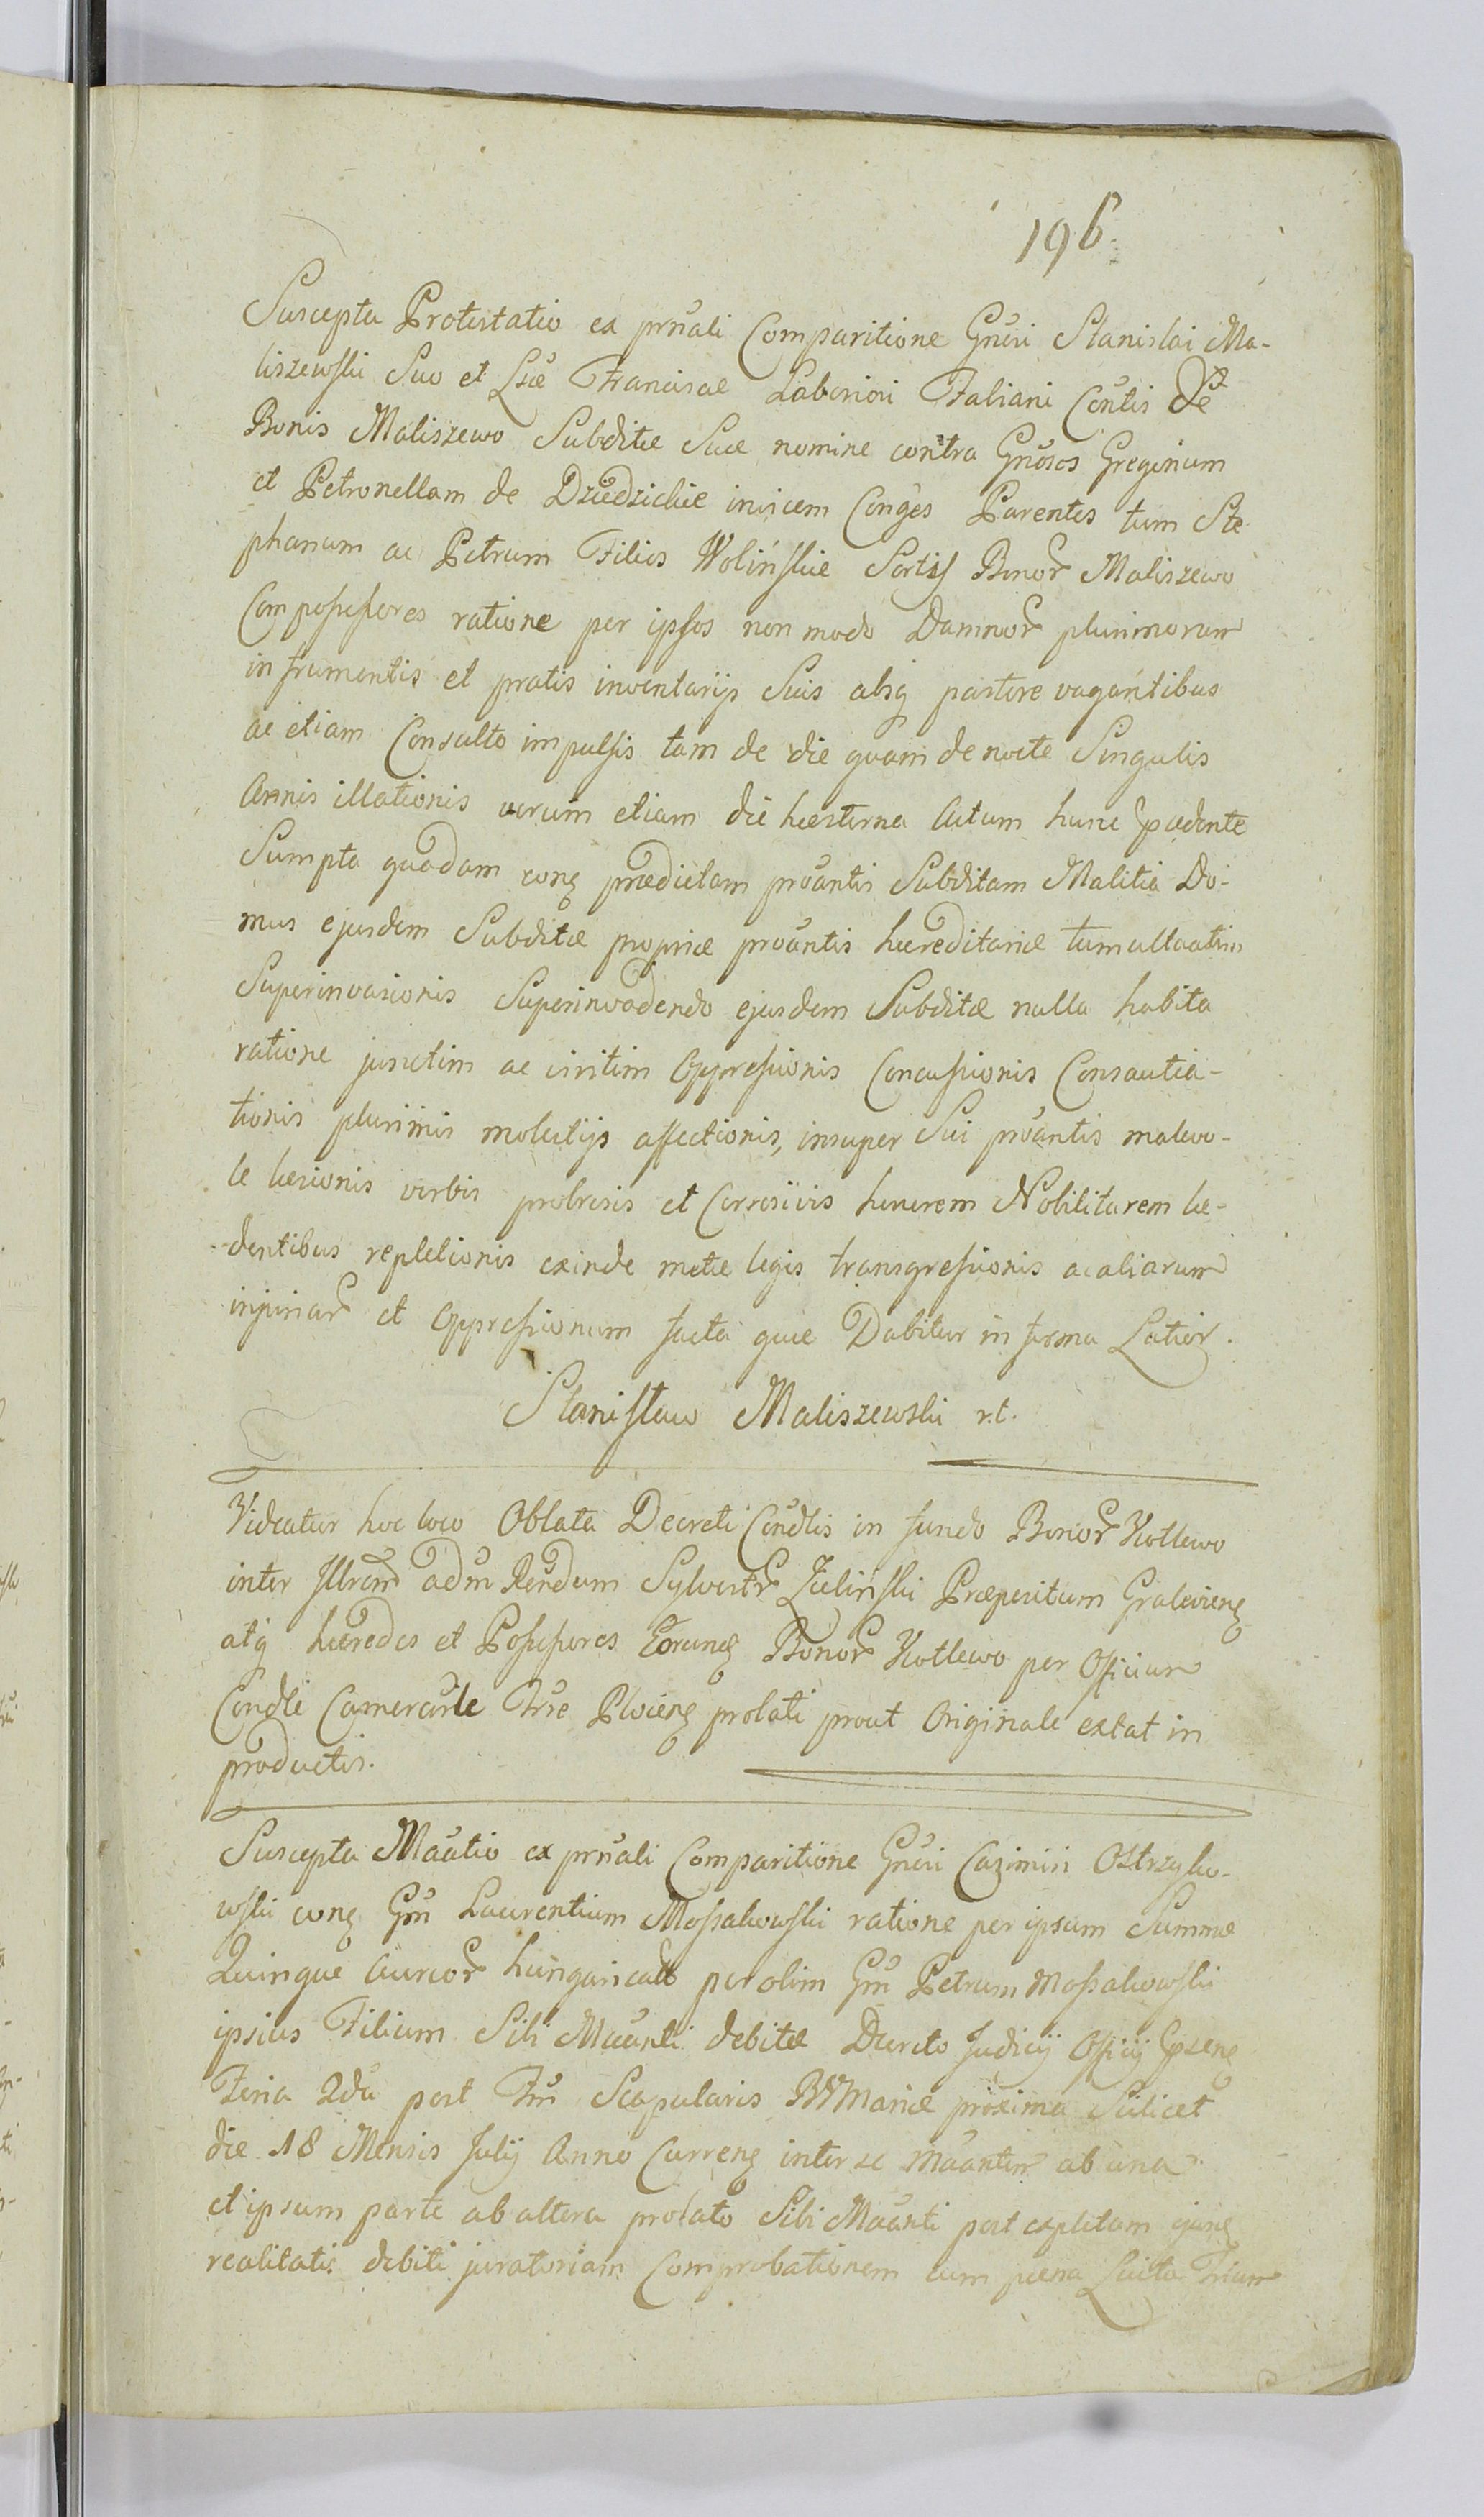 196.
Suscepta Protestatio ex prnali Comparitione Gnri Stanislai Ma-
liszewski Suo et Lsæ Franciscæ Laboriosi Fabiani Contis de
Bonis Maliszewo Subditæ Suæ nomine contra Gnrosos Gregorium
et Petronellam de Dziedzickie invicem Conges Parentes tum Ste
phanum ac Petrum Filios Wolińskie Sortis Bonor Maliszewo
Compossessores ratione per ipsos non modo Damnor plurimorum
in frumentis et pratis inventarijs Suis absq pastore vagantibus
ac etiam Consulto impulsis tam de die quam de nocte Singulis
Annis illationis verum etiam die hesterna Actum hunc præcedente
Sumpta quadam conq prædictam proantis Subditam Malitia Do-
mus ejusdem Subditæ propriæ proantis hæreditariæ tumultuatim
Superinvasionis Superinvadendo ejusdem Subditæ nulla habita
ratione junctim ac viritim Oppressionis Concussionis Consautia-
tionis plurimis molestijs affectionis, insuper Sui proantis malevo-
le læsionis verbis probrosis et Corrosivis honorem Nobilitarem læ-
dentibus repletionis exinde metæ legis transgressionis ac aliarum
injuriar et Oppressionum facta quæ Dabitur in forma Latior.
Stanisław Maliszewski r.t.
Videatur hoc loco Oblata Decreti Condlis in fundo Bonor Kotlewo
inter Illrem adm Rendum Sylvestr Zielinski Præpositum Gralevienq
atq hæredes et Possessores Eorunq Bonor Kotlewo per Officium
Condle Camerarile Trræ Plocienq prolati prout Originale extat in
productis.
Suscepta Maatio ex prnali Comparitione Gnri Casimiri Ostrzyko-
wski conq Gm Laurentium Mossakowski ratione per ipsum Summæ
Quinque Aureor hungaricalr per olim Gm Petrum Mossakowski
ipsius Filium Sibi Maanti debitæ Dcreto Judicij Officij Gpsenq
Feria 2da post Ftm Scapularis BVMariæ proxima Scilicet
die 18 Mensis Julij Anno Currenq inter se Maantem ab una
et ipsum parte ab altera prolato Sibi Maanti post expletam ejunq
realitatis debiti juratoriam Comprobationem cum pæna Luita Trium